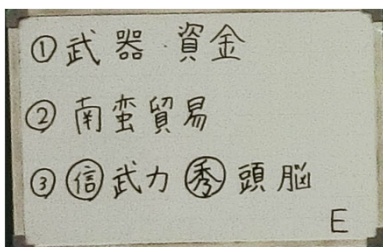 ①武器・資金
②南蛮貿易
③㊞信武力㊞秀頭脳
E